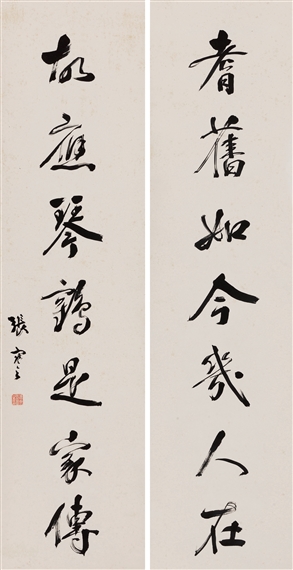 耆舊如今幾人在
故應琴鶴是家傳
張寒之